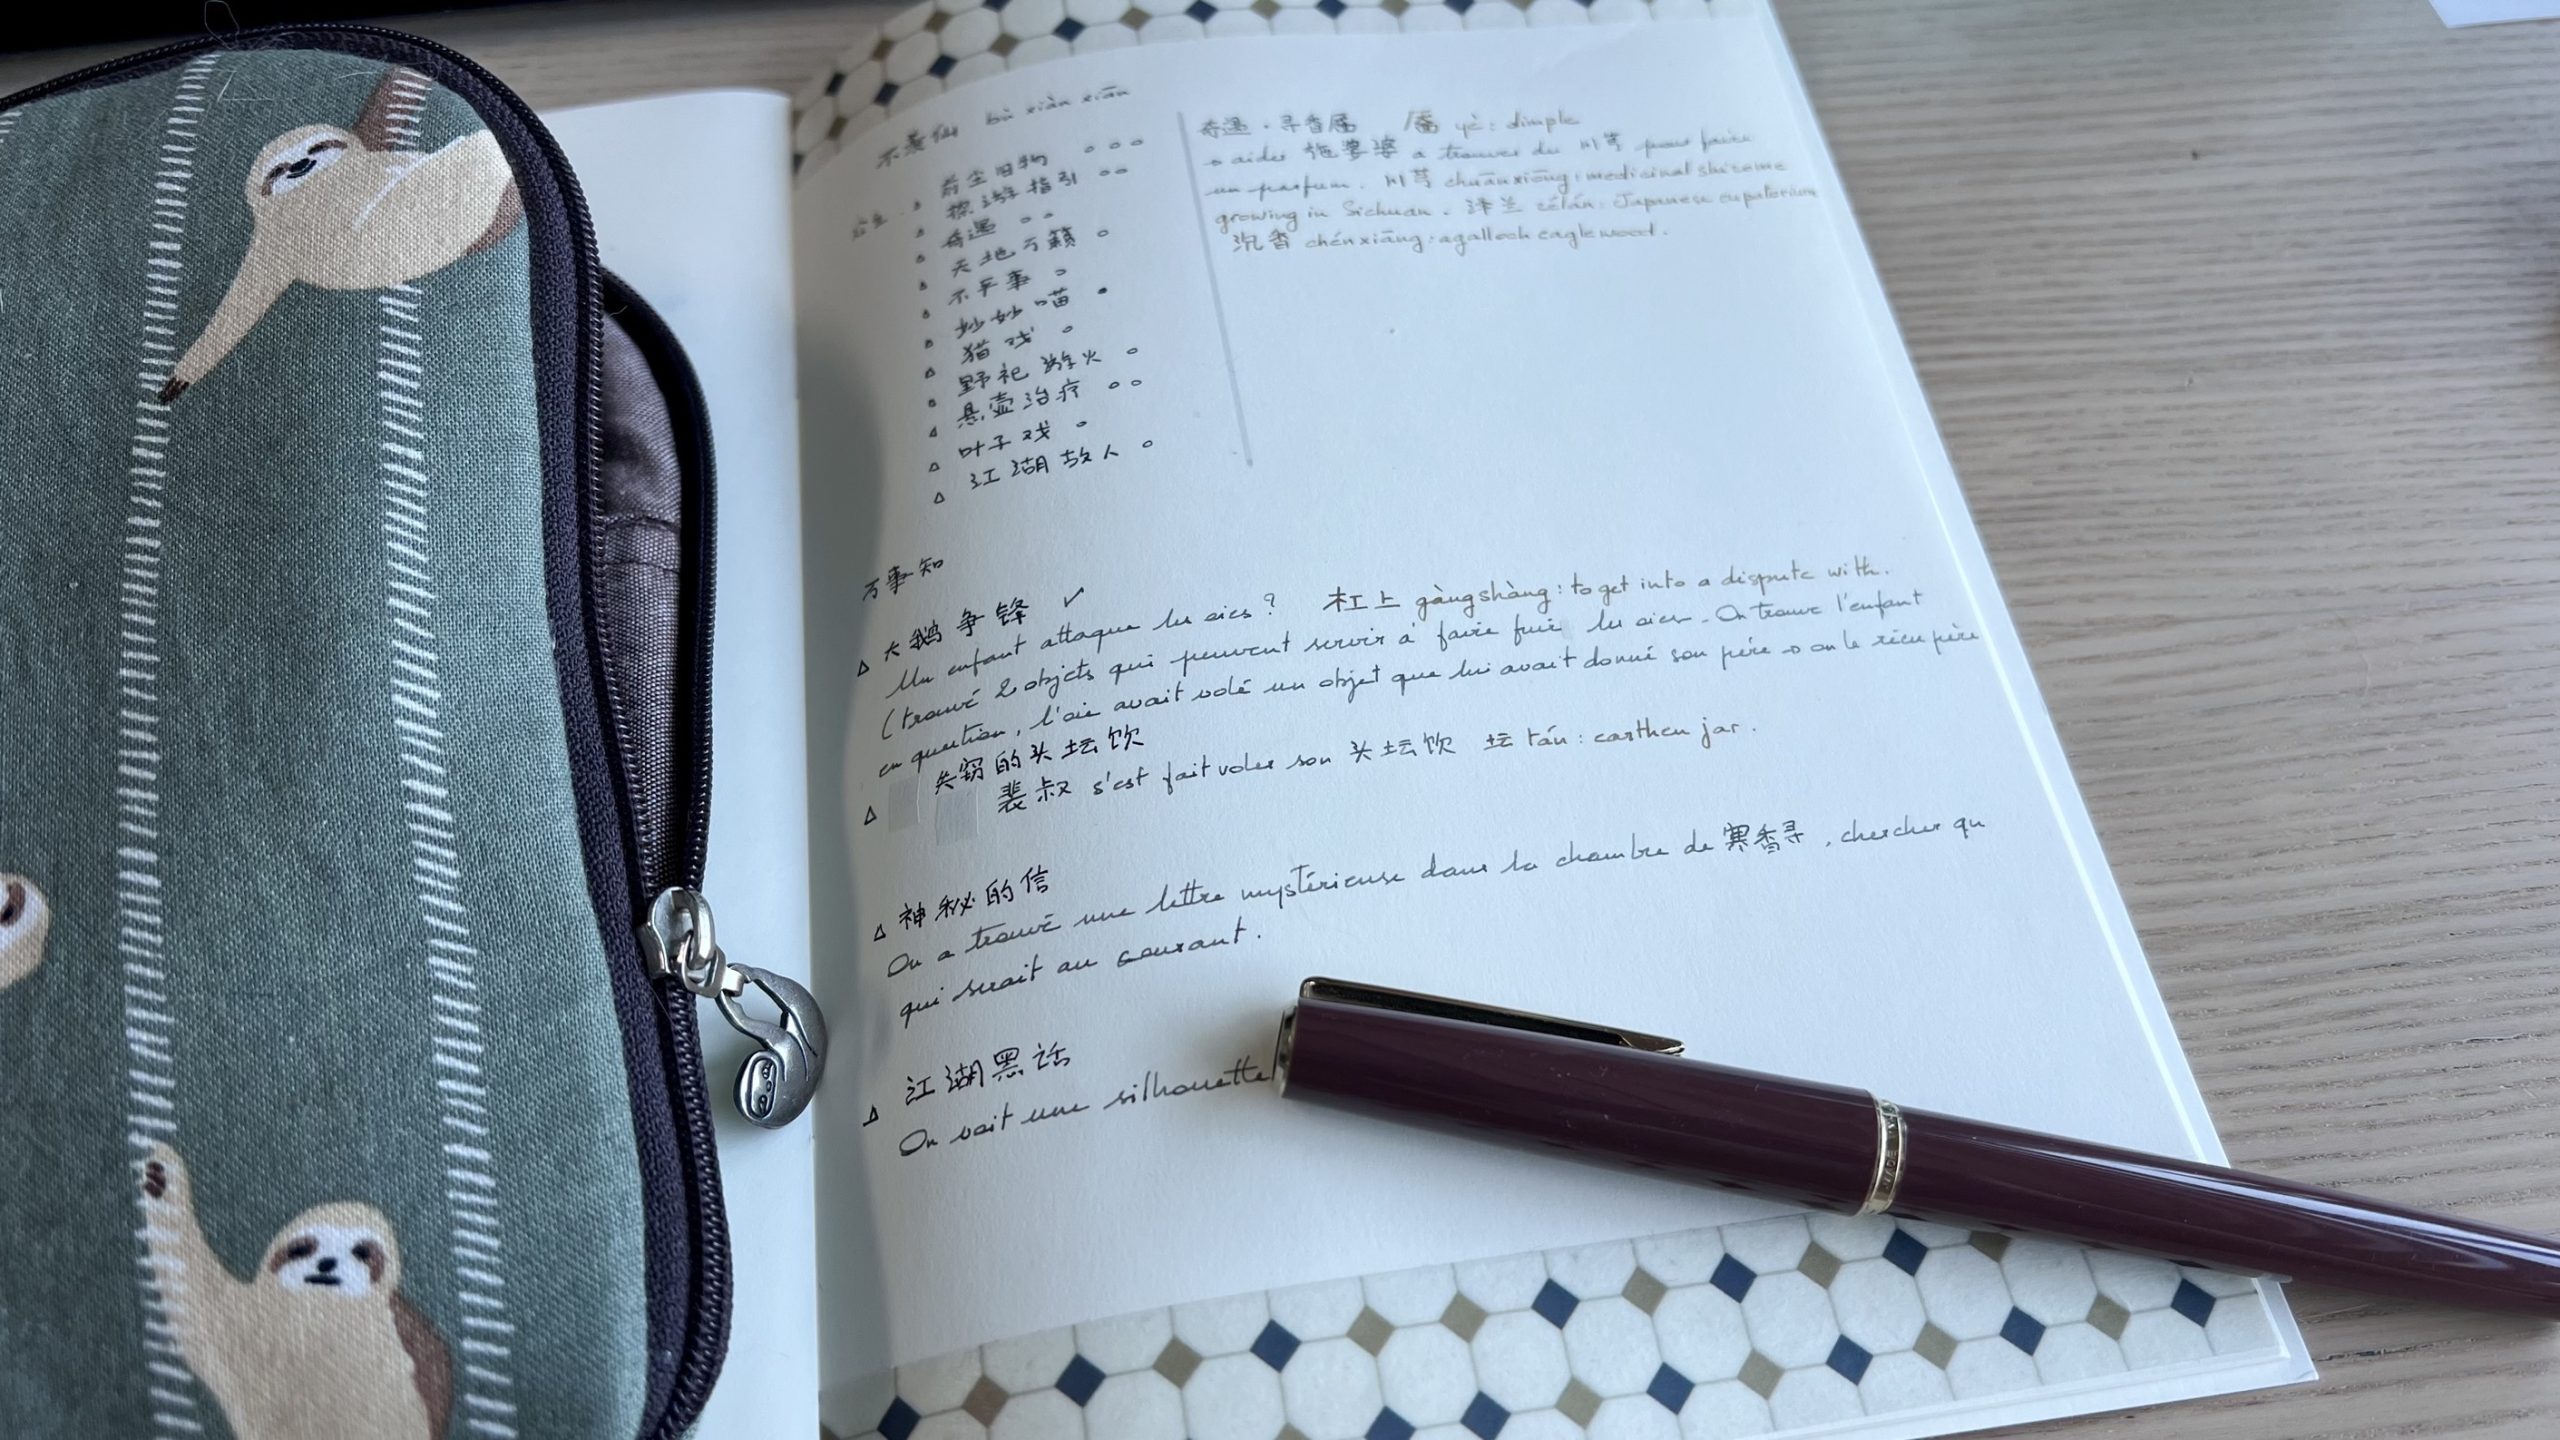 不羡仙 bù xiàn xiān
前尘旧物 ○ ○ ○
探游指引 ○ ○
奇遇 ○ ○
天地万籁 ○
不平事 ○
妙妙喵
猫戏 ○
野祀游火 ○
悬壶治疗 ○ ○
叶子戏 ○
△ 江湖故人 ○
奇遇 · 寻香靥 靥 yè : dimple
aider 施婆婆 a trouver du 川芎 pour faire
un parfum. 川芎 chuānxiōng : medicinal
growing in Sichuan. 泽兰 zélán : Japanese eupatorium
沉香 chénxiāng : agalloch eaglewood.
万事知
△ 大鹅争锋 ✓
Un enfant attaque les oies ? 杠上 gàngshàng : to get into a dispute with.
(trouvé 2 objets qui peuvent servir à faire fuir les oies. On trouve l'enfant
en question, l'oie avait volé un objet que lui avait donné son père → on le récupère
△ 失窃的头坛饮
裴叔 s'est fait voler son 头坛饮 坛 tán : earthen jar.
△ 神秘的信
On a trouvé une lettre mystérieuse dans la chambre de 寒香寻, chercher qu
qui serait au courant.
△ 江湖黑话
On voit une silhouette
MADE